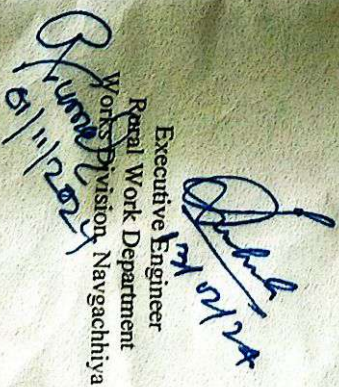 13/02/24
Executive Engineer
Rural Work Department
Works Division, Navgachhiya
01/11/2024